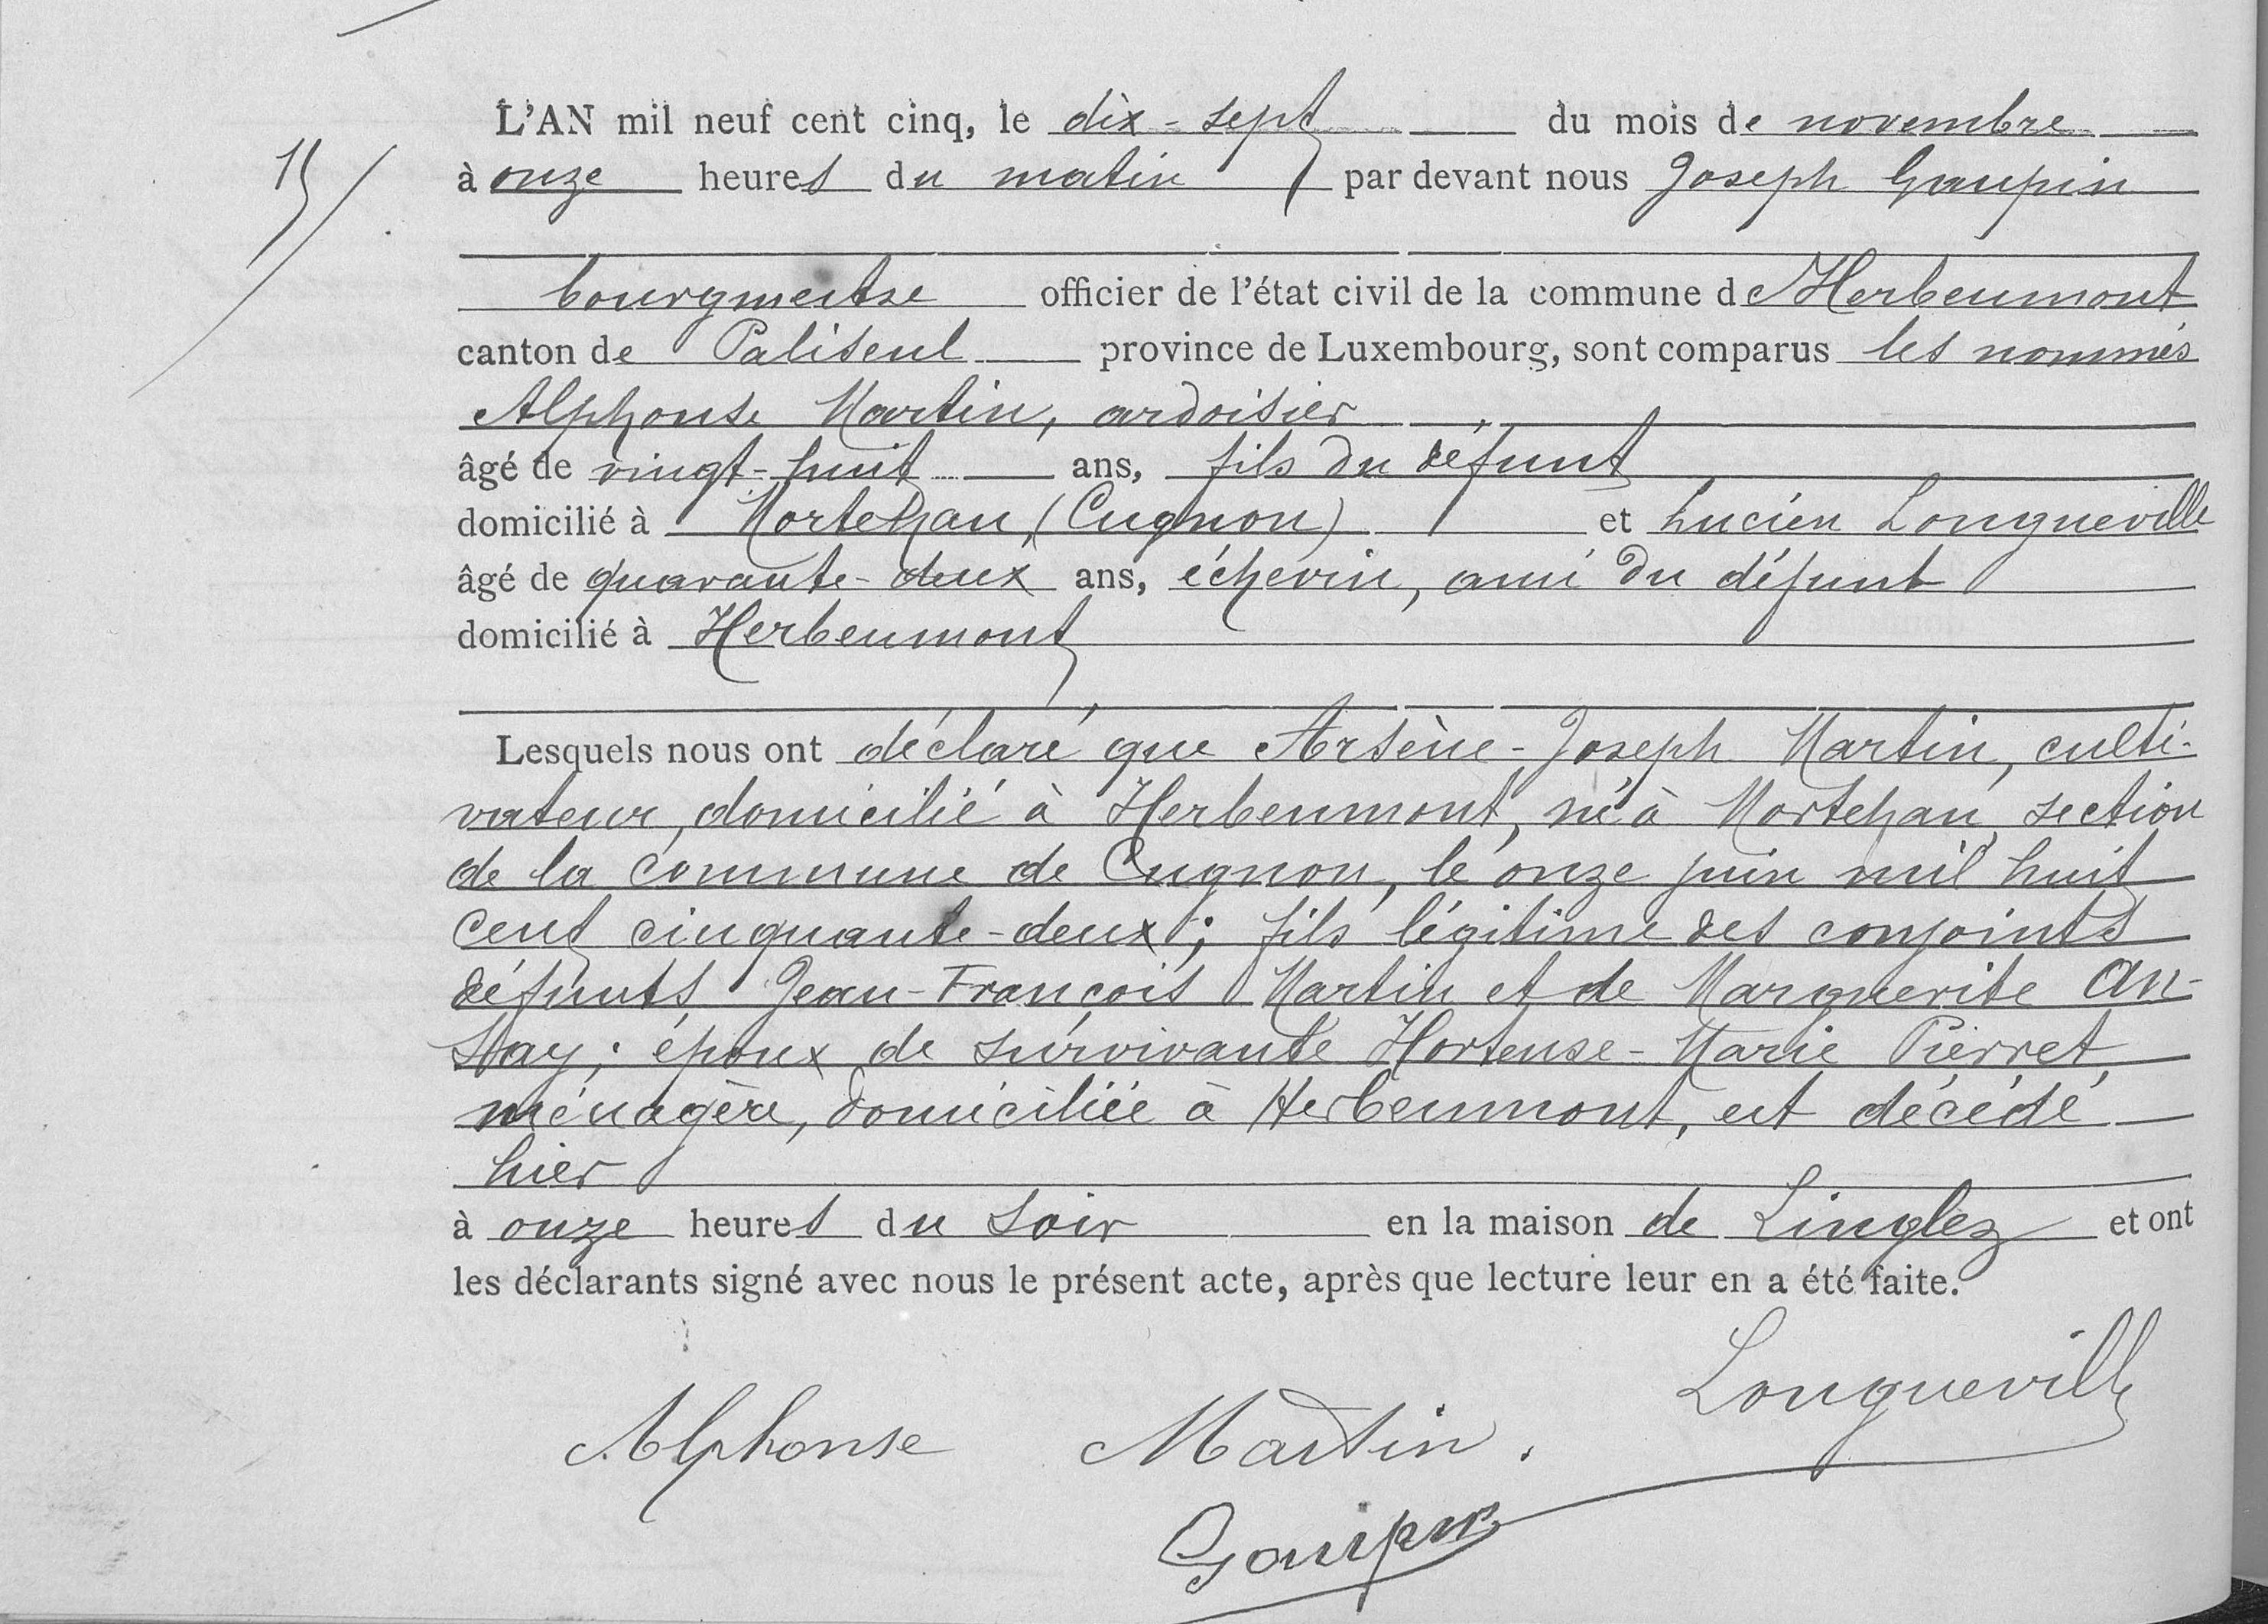 15
L'AN mil neuf cent cinq, le dix-sept du mois de novembre
à onze heures du matin par devant nous Joseph Gaupin
bourgmestre officier de l'état civil de la commune de Herbeumont
canton de Paliseul province de Luxembourg, sont comparus les nommés
Alphonse Martin, ardoisier
âgé de vingt-huit ans, fils du défunt
domicilié à Mortehan, (Cugnon) et Lucien Longueville
âgé de quarante-deux ans, échevin, ami du défunt
domicilié à Herbeumont
Lesquels nous ont déclaré que Arsène-Joseph Martin, culti-
vateur, domicilié à Herbeumont, né à Mortehan, section
de la commune de Cugnon, le onze juin mil huit
cent cinquante-deux; fils légitime des conjoints
défunts, Jean-François Martin et de Marguerite An-
slay; époux de survivante Hortense-Marie Pierret,
ménagère, domiciliée à Herbeumont, est décédé
hier
à onze heures du soir en la maison de Linglez et ont
les déclarants signé avec nous le présent acte, après que lecture leur en a été faite.
Longueville
Alphonse Martin.
Gaupin